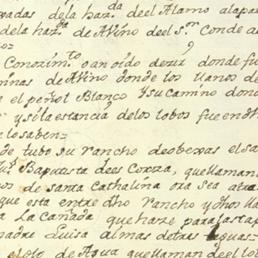 vadas dela haz.da deel Alamo alapar
dela haz.da de Avino deel s.r Conde de
Conozim.to an oido dezir donde fue
minas de Avino donde los llanos de
er el peñol Blanco Ysu camino don
Ysila estancia delos lobos fue en
lo saben=
de tubo su rancho de obexas el sa
Baptista dees Correa, que llaman
os de santa Cathalina ora sea atra
que esta entre dho rancho y otros lla
a La Cañada que haze para la stap
madre Luisa almas de tres leguas=
el ojo de Agua que llaman de el lob